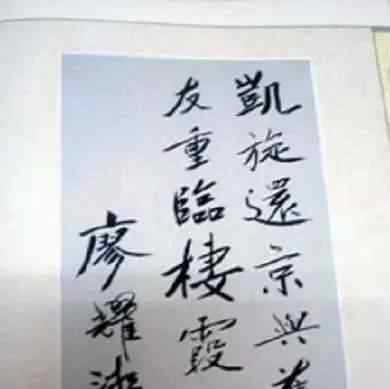 凱旋還京與
友重臨棲霞
廖耀湘